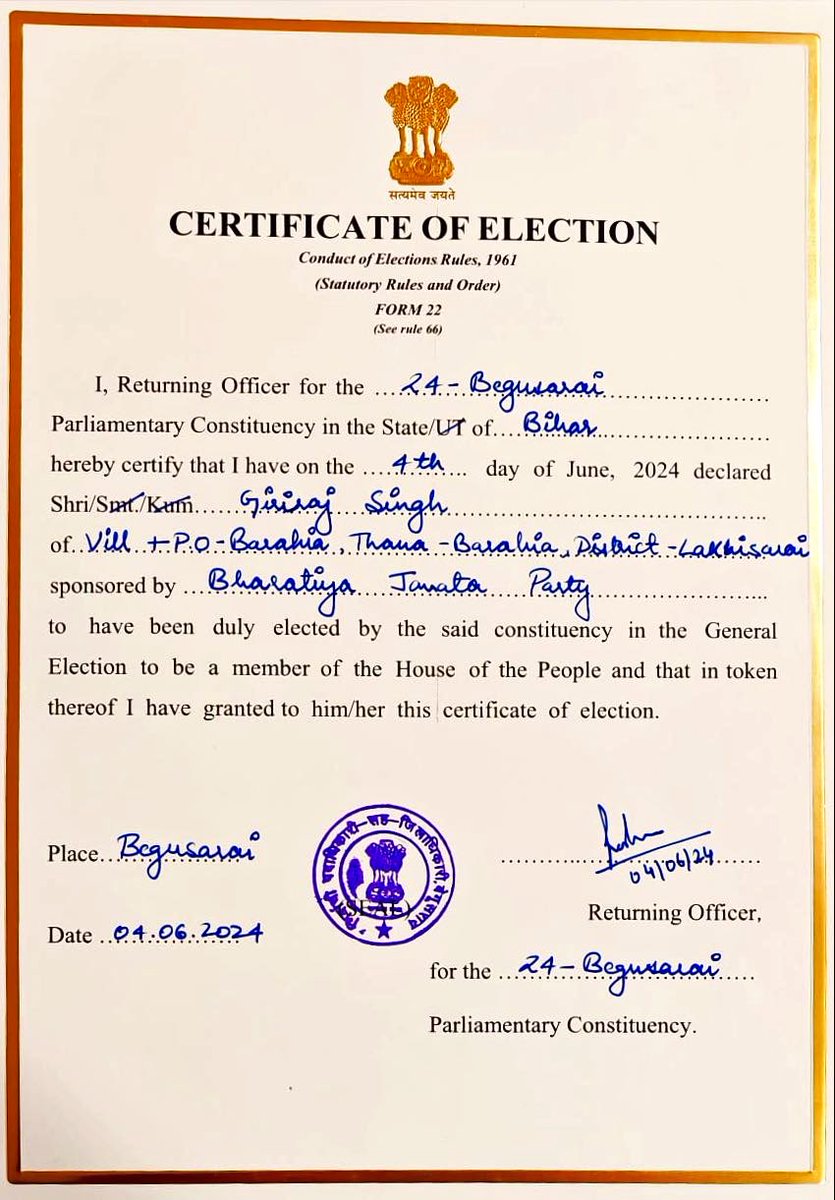 सत्यमेव जयते
CERTIFICATE OF ELECTION
Conduct of Elections Rules, 1961
(Statutory Rules and Order)
FORM 22
(See rule 66)
I, Returning Officer for the ...24 - Begusarai...
Parliamentary Constituency in the State/UT of... Bihar...
hereby certify that I have on the ...4th... day of June, 2024 declared
Shri/Smt./Kum... Giriraj Singh...
of.. Vill + P.O - Barahia, Thana - Barahia, District - Lakhisarai
sponsored by ... Bharatiya Janata Party...
to have been duly elected by the said constituency in the General
Election to be a member of the House of the People and that in token
thereof I have granted to him/her this certificate of election.
निर्वाची पदाधिकारी-सह-जिलाधिकारी, बेगूसराय
(SEAL)
04/06/24
Place... Begusarai
Returning Officer,
Date ...04.06.2024
for the ...24 - Begusarai...
Parliamentary Constituency.